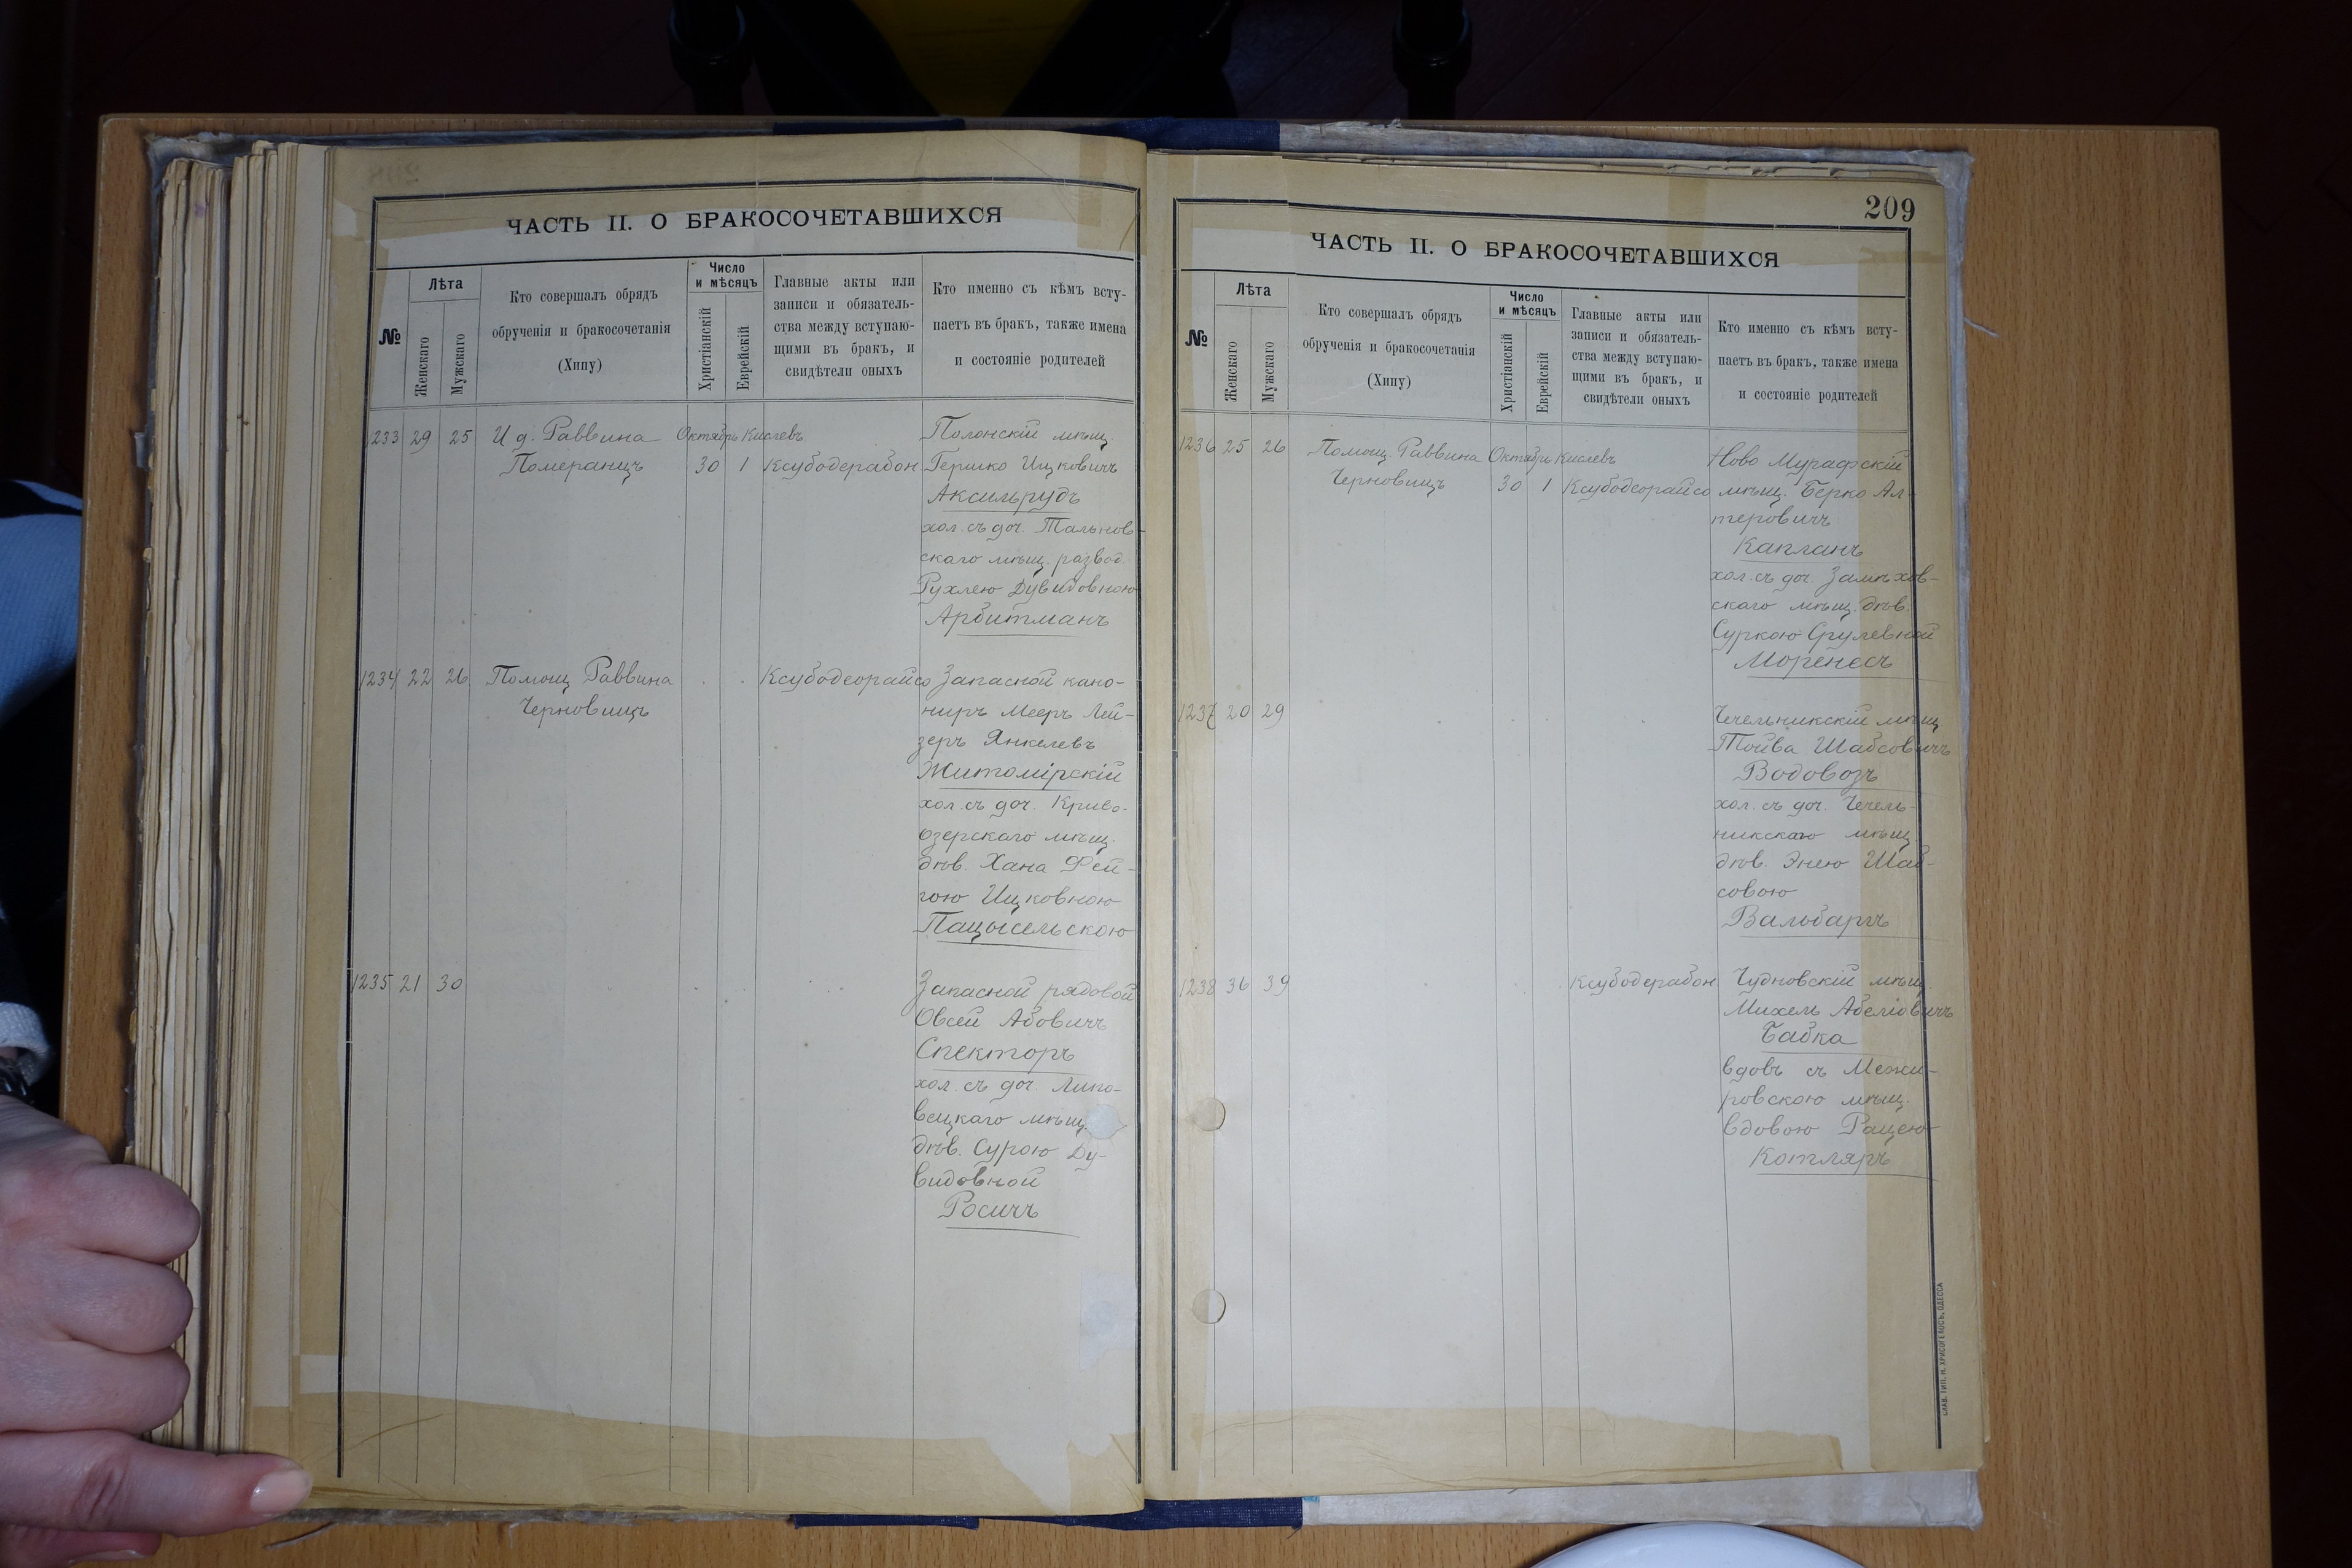 ЧАСТЬ II. О БРАКОСОЧЕТАВШИХСЯ
№
Лѣта
Женскаго
Мужскаго
Кто совершалъ обрядъ
обрученія и бракосочетанія
(Хипу)
Число
и мѣсяцъ
Христіанскій
Еврейскій
Главные акты или
записи и обязатель-
ства между вступаю-
щими въ бракъ, и
свидѣтели оныхъ
Кто именно съ кѣмъ всту-
паетъ въ бракъ, также имена
и состояніе родителей
1233 29 25 И д. Раввина Октябрь Кислевъ Полонскій мѣщ.
Померанцъ 30 1 Ксубодерабон Гершко Ицковичъ
Аксельрудъ
хол. съ доч. Тальнов-
скаго мѣщ. развод.
Рухлею Дувидовною
Арбитманъ
1234 22 26 Помощ Раввина Ксубодеорайсо Запасной кано-
Черновицъ ниръ Мееръ Лей-
зеръ Янкелевъ
Житомірскій
хол. съ доч. Криво-
озерскаго мѣщ.
дѣв. Хана Фей-
гою Ицковною
Пацысельскою
1235 21 30 Запасной рядовой
Овсей Абовичъ
Спекторъ
хол. съ доч. Липо-
вецкаго мѣщ.
дѣв. Сурою Ду-
видовной
Росичъ
209
ЧАСТЬ II. О БРАКОСОЧЕТАВШИХСЯ
№
Лѣта
Женскаго
Мужскаго
Кто совершалъ обрядъ
обрученія и бракосочетанія
(Хипу)
Число
и мѣсяцъ
Христіанскій
Еврейскій
Главные акты или
записи и обязатель-
ства между вступаю-
щими въ бракъ, и
свидѣтели оныхъ
Кто именно съ кѣмъ всту-
паетъ въ бракъ, также имена
и состояніе родителей
1236 25 26 Помощ. Раввина Октябрь Кислевъ Ново Мурафскій
Черновицъ 30 1 Ксубодеорайсо мѣщ. Берко Ал-
теровичъ
Капланъ
хол. съ доч. Замѣхов-
скаго мѣщ. дѣв.
Суркою Срулевной
Моренесъ
1237 20 29 Чечельникскій мѣщ
Тойва Шабсовичъ
Водовозъ
хол. съ доч. Чечель-
никскаго мѣщ.
дѣв. Энею Шаб-
совою
Вальбаръ
1238 36 39 Ксубодерабон Чудновскій мѣщ.
Михель Абеліовичъ
Бабка
вдовъ съ Межи-
ровскою мѣщ.
вдовою Рацею
Котляръ
СЛАВ. ТИП. Н. ХРИСОГЕЛОСЪ, ОДЕССА